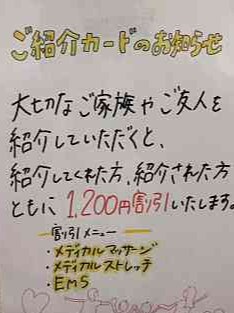 ご紹介カードのお知らせ
大切なご家族やご友人を
紹介していただくと、
紹介してくれた方、紹介された方
ともに1,200円割引いたします。
割引メニュー
・メディカルマッサージ
・メディカルストレッチ
・EMS